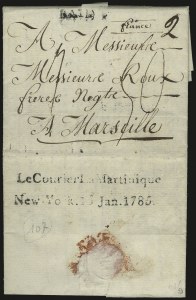 france 2
A Messieurs
Messieurs Roux
freres Negts
A Marseille
Le Courier La Martinique
New York. Jan. 1785.